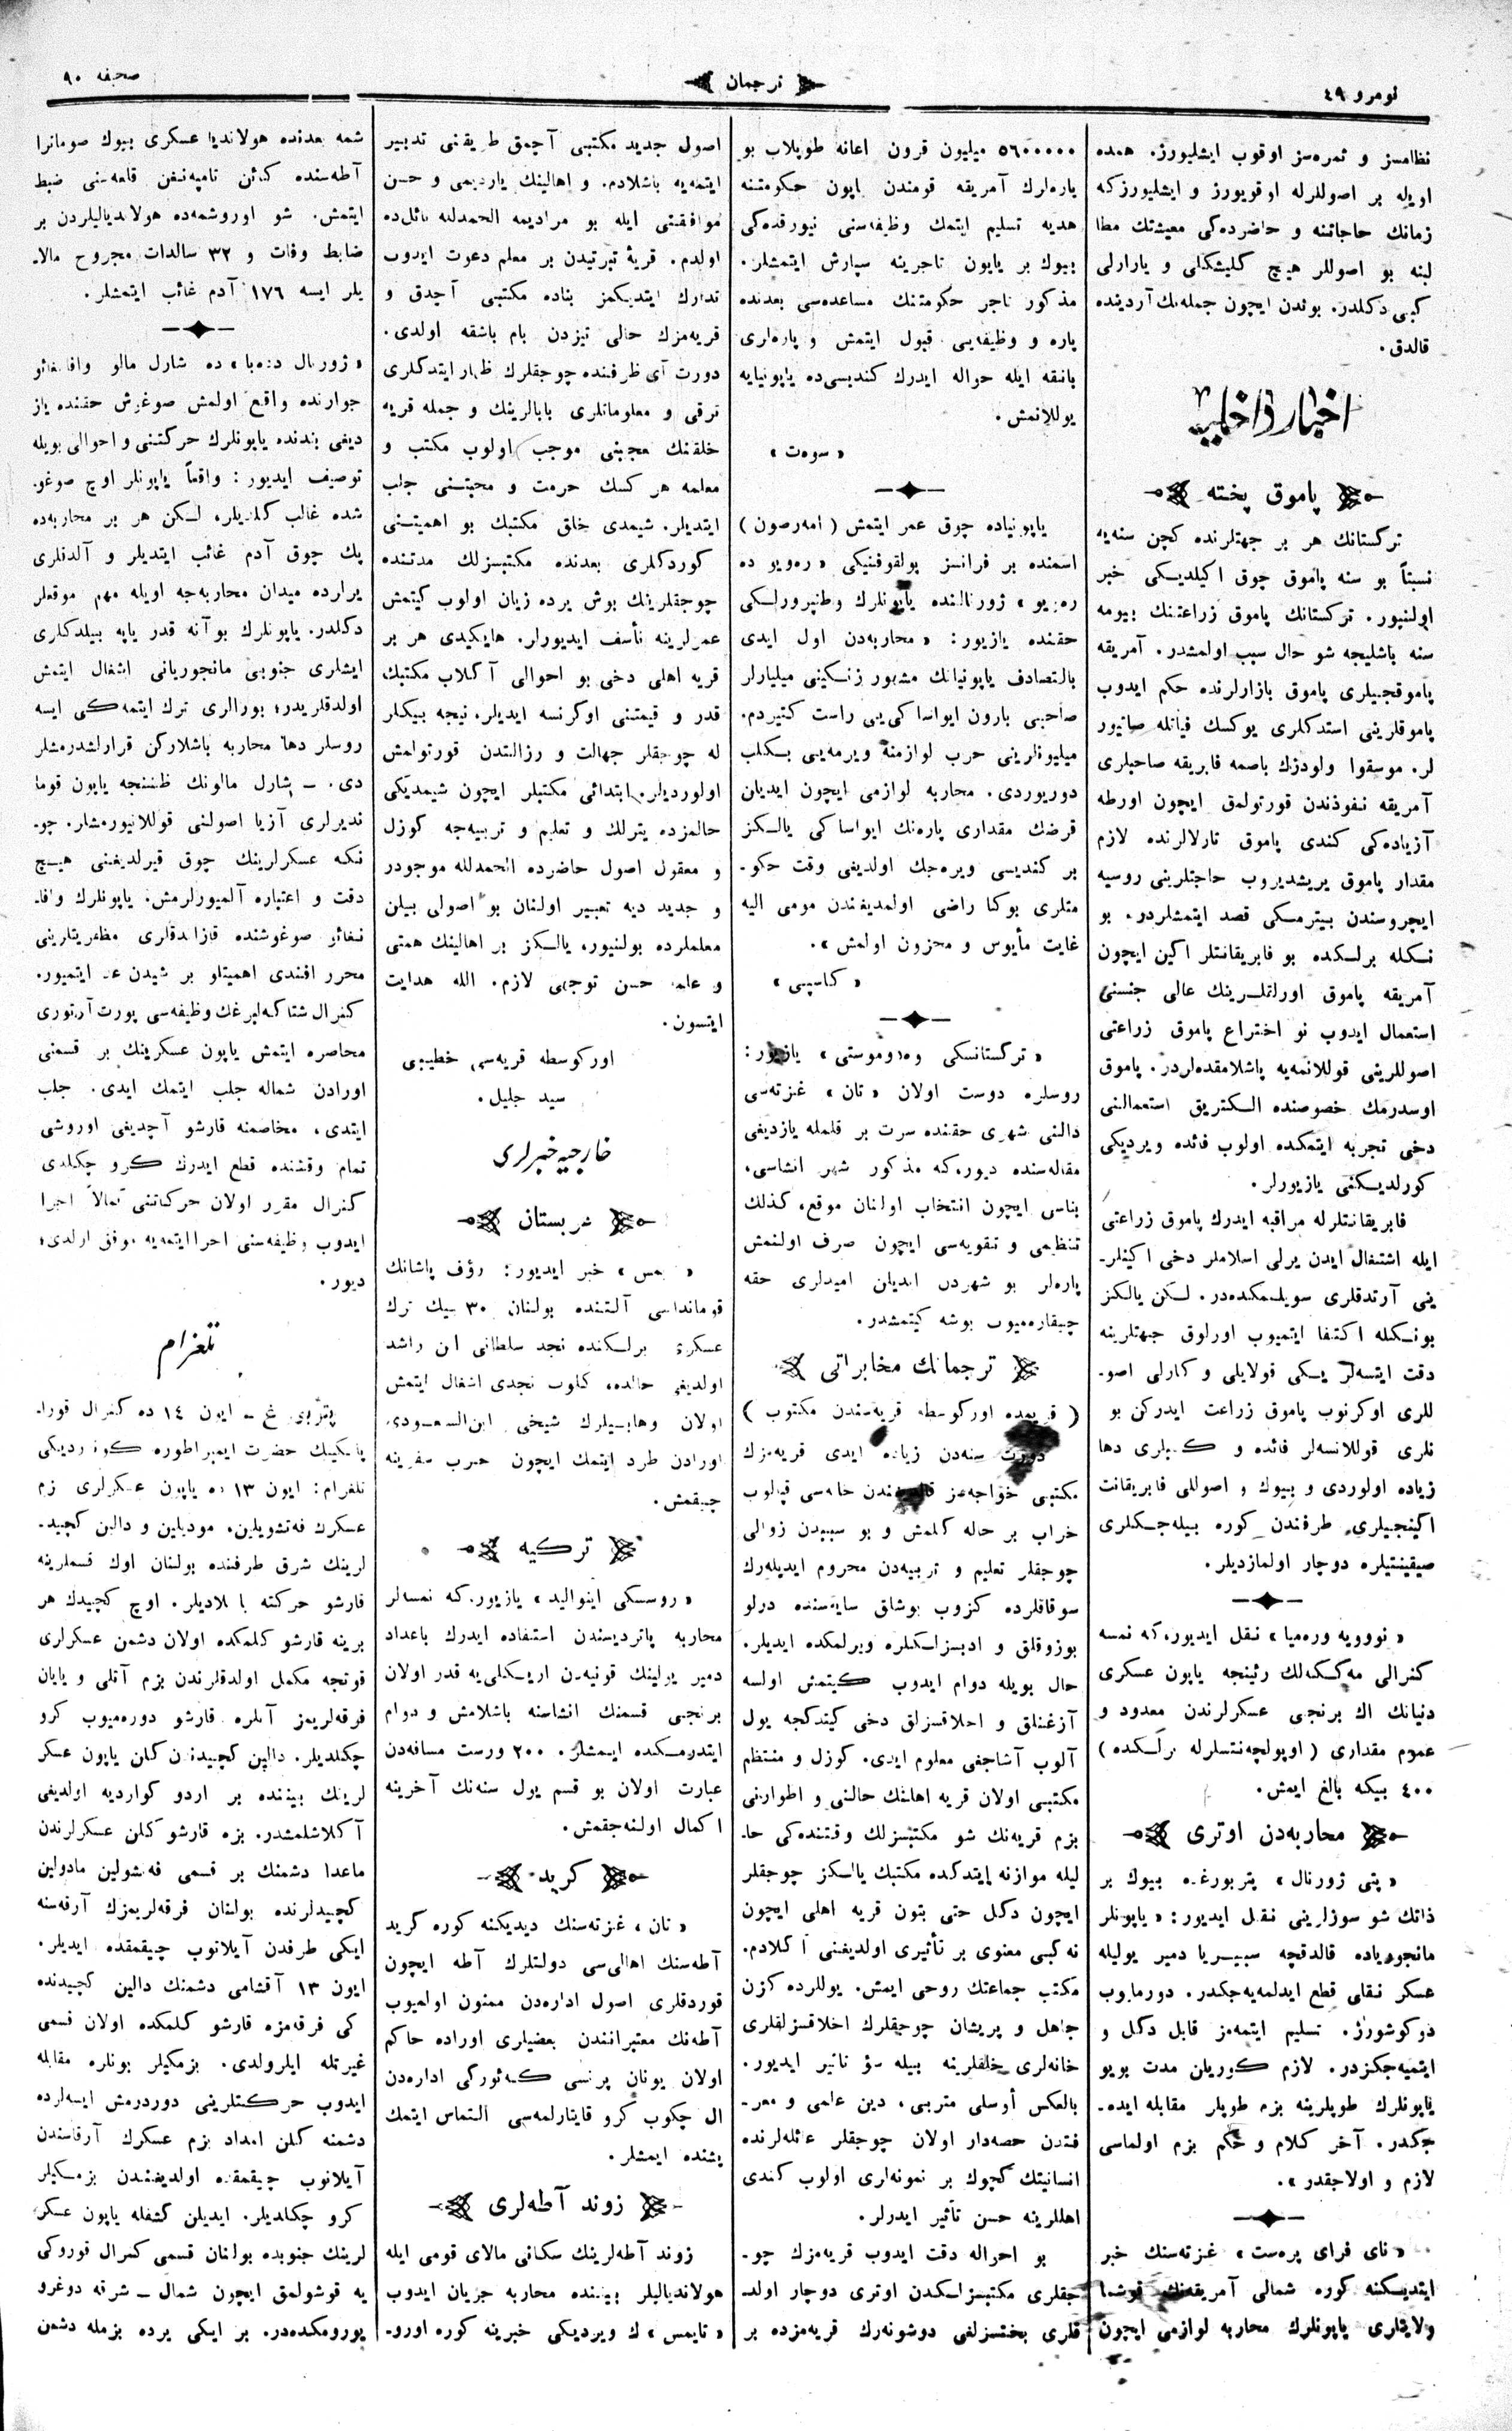 نومرو ٤٩
ترجمان
صحفه ٩٠
نظامسز و ثمره‌سز اوقوب ایشلیورز. همده
اویله بر اصوللرله اوقویورز و ایشلیورزكه
زمانك حاجاتنه و حاضرده‌كی معیشتك مطا
لبنه بو اصوللر هیچ كلیشكلی و یارارلی
كبی دكلدر. بوندن ایچون جمله‌نك آردینده
قالدق.
اخبار داخلیه
پاموق پخته
تركستانك هر بر جهتلرنده كچن سنه‌یه
نسبتاً بو سنه پاموق چوق اكیلدیكی خبر
اولنیور. تركستانك پاموق زراعتنك بیومه
سنه باشلیجه شو حال سبب اولمشدر. آمریقه
پاموقجیلری پاموق بازارلرنده حكم ایدوب
پاموقلرینی استدكلری یوكسك فیاتله صاتیور
لر. موسقوا ولودزك باصمه فابریقه صاحبلری
آمریقه نفوذندن قورتولمق ایچون اورطه
آزیاده‌كی كندی پاموق تارلالرنده لازم
مقدار پاموق یریشدیروب حاجتلرینی روسیه
ایچروسندن بیترمكی قصد ایتمشلردر. بو
نكله برلكده بو فابریقانتلر اكین ایچون
آمریقه پاموق اورلقلرینك عالی جنسنی
استعمال ایدوب نو اختراع پاموق زراعتی
اصوللرینی قوللانمه‌یه باشلامقده‌لردر. پاموق
اوسدرمك خصوصنده الكتریق استعمالنی
دخی تجربه ایتمكده اولوب فائده ویردیكی
كورلدیكنی یازیورلر.
فابریقانتلرله مراقبه ایدرك پاموق زراعتی
ایله اشتغال ایدن یرلی اسلاملر دخی اكینلر-
ینی آرتدقلری سویلمكده‌در. لكن یالكز
بونكله اكتفا ایتمیوب اورلوق جهتلرینه
دقت ایتسه‌لر یكی قولایلی و كارلی اصو-
للری اوكرنوب پاموق زراعت ایدركن بو
نلری قوللانسه‌لر فائده و كیلری دها
زیاده اولوردی و بیوك و اصوللی فابریقانت
اكینجیلری طرفندن كوره بیله‌جكلری
صیقینتیلره دوچار اولمازدیلر.
« نوویه وره‌میا » نقل ایدیور،كه نمسه
كنرالی مه‌ككه‌لك رئینجه یاپون عسكری
دنیانك اك برنجی عسكرلرندن معدود و
عموم مقداری ( اوپولچه‌نتسلرله برلكده )
٤٠٠ بیكه بالغ ایمش.
محاربه‌دن اوتری
« پتی ژورنال » پتربورغده بیوك بر
ذاتك شو سوزلرینی نقل ایدیور: « یاپونلر
مانجوریاده قالدقچه سیبیریا دمیر یولیله
عسكر نقلی قطع ایدلمه‌یه‌جكدر. دورمایوب
دوكوشورژ. تسلیم ایتمه‌مز قابل دكل و
ایتمیه‌جكزدر. لازم كوریلن مدت بویو
یاپونلرك طوپلرینه بزم طوپلر مقابله ایده-
جكدر. آخر كلام و حكم بزم اولماسی
لازم و اولاجقدر ».
« نای فرای پره‌ست » غزته‌سنك خبر
ایتدیكنه كوره شمالی آمریقه‌نك قوشما
ولایتلری یاپونلرك محاربه لوازمی ایچون
٥٦٠٠٠٠٠ میلیون قرون اعانه طوپلاب بو
پاره‌لرك آمریقه قومندن یاپون حكومتنه
هدیه تسلیم ایتمك وظیفه‌سنی نیورقده‌كی
بیوك بر یاپون تاجرینه سپارش ایتمشلر.
مذكور تاجر حكومتنك مساعده‌سی بعدنده
پاره و وظیفه‌یی قبول ایتمش و پاره‌لری
بانقه ایله حواله ایدرك كندیسی‌ده یاپونیایه
یوللانمش.
« سوه‌ت »
یاپونیاده چوق عمر ایتمش ( امه‌رصون )
اسمنده بر فرانسز پولقوفنیكی « ره‌ویو ده
ره‌ویو » ژورنالنده یاپونلرك وطنپرورلكی
حقنده یازیور: « محاربه‌دن اول ایدی
بالتصادف یاپونیانك مشهور زنكینی میلیارلر
صاحبی بارون ایواساكی‌یی راست كتیردم.
میلیونلرینی حرب لوازمنه ویرمه‌یی بكلب
دوریوردی. محاربه لوازمی ایچون ایدیان
قرضك مقداری پاره‌نك ایواساكی یالكز
بر كندیسی ویره‌جك اولدیغی وقت حكو-
متلری بوكا راضی اولمدیغندن مومی الیه
غایت مأیوس و محزون اولمش ».
« كاسپی »
« تركستانسكی وه‌دوموستی » یازیور:
روسلره دوست اولان « تان » غزته‌سی
دالنی شهری حقنده سرت بر قلمله یازدیغی
مقاله‌سنده دیور،كه مذكور شهر انشاسی،
بناسی ایچون انتخاب اولنان موقع، كذلك
تنظیمی و تقویه‌سی ایچون صرف اولنمش
پاره‌لر بو شهردن ایدیان امیدلری حقه
چیقاره‌میوب بوشه كیتمشدر.
ترجمانك مخابراتی
( قریمده اوركوسطه قریه‌سندن مكتوب )
دورت سنه‌دن زیاده ایدی قریه‌مزك
مكتبی خواجه‌مز خانه‌سی قپالوب
خراب بر حاله كلمش و بو سببدن زوالی
چوجقلر تعلیم و تربیه‌دن محروم ایدیله‌رك
سوقاقلرده كزوب بوشاق سایه‌سنده درلو
بوزوقلق و ادبسزلكلره ویرلمكده ایدیلر.
حال بویله دوام ایدوب كیتمش اولسه
آزغنلق و اخلاقسزلق دخی كیتدكجه یول
آلوب آشاجغی معلوم ایدی. كوزل و منتظم
مكتبی اولان قریه اهلنك حالنی و اطوارنی
بزم قریه‌نك شو مكتبسزلك وقتنده‌كی حا-
لیله موازنه ایتدكده مكتبك یالكز چوجقلر
ایچون دكل حتی بتون قریه اهلی ایچون
نه كبی معنوی بر تأثیری اولدیغنی آكلادم.
مكتب جماعتك روحی ایمش. یوللرده كزن
جاهل و پریشان چوجقلرك اخلاقسزلقلری
خانه‌لری خلقلرینه بیله سؤ تاثیر ایدیور.
بالعكس أوسلی متربی، دین علمی و معر-
فتدن حصه‌دار اولان چوجقلر عائله‌لرنده
انسانیتك كچوك بر نمونه‌لری اولوب كندی
اهللرینه حسن تأثیر ایدرلر.
بو احواله دقت ایدوب قریه‌مزك چو-
جقلری مكتبسزلكدن اوتری دوچار اولد-
قلری بختسزلغی دوشونه‌رك قریه‌مزده بر
اصول جدید مكتبی آچمق طریقنی تدبیر
ایتمه‌یه باشلادم. و اهالینك یاردیمی و حسن
موافقتی ایله بو مرادیمه الحمدلله نائل‌ده
اولدم. قریۀ تیرتیدن بر معلم دعوت ایدوب
تدارك ایتدیكمز بناده مكتبی آچدق و
قریه‌مزك حالی تیزدن بام باشقه اولدی.
دورت آی ظرفنده چوجقلرك ظهار ایتدكلری
ترقی و معلوماتلری بابالرینك و جمله قریه
خلقنك عجبنی موجب اولوب مكتب و
معلمه هر كسك حرمت و محبتنی جلب
ایتدیلر. شیمدی خلق مكتبك بو اهمیتنی
كوردكلری بعدنده مكتبسزلك مدتنده
چوجقلرینك بوش یرده زیان اولوب كیتمش
عمرلرینه تأسف ایدیورلر. هایكیدی هر بر
قریه اهلی دخی بو احوالی آكلاب مكتبك
قدر و قیمتنی اوكرنسه ایدیلر. نیجه بیكلر
له چوجقلر جهالت و رزالتدن قورتولمش
اولوردیلر. ابتدائی مكتبلر ایچون شیمدیكی
حالمزده یترلك و تعلیم و تربیه‌جه كوزل
و معقول اصول حاضرده الحمدلله موجودر
و جدید دیه تعبیر اولنان بو اصولی بیلن
معلملرده بولنیور، یالكز بر اهالینك همتی
و علما حسن توجهی لازم. الله هدایت
ایتسون.
اوركوسطه قریه‌سی خطیبی
سید جلیل.
خارجیه خبرلری
عربستان
« تیمس » خبر ایدیور: رؤف پاشانك
قومانداسی آلتنده بولنان ٣٠ بیك ترك
عسكری برلكنده نجد سلطانی ابن راشد
اولدیغی حالده، كلوب نجدی اشغال ایتمش
اولان وهابیلرك شیخی ابن‌السعودی
اورادن طرد ایتمك ایچون حرب سفرینه
چیقمش.
تركیه
« روسسكی اینوالید » یازیور،كه نمسه‌لر
محاربه پاتردیسندن استفاده ایدرك باغداد
دمیر یولینك قونیه‌دن اریكلی‌یه قدر اولان
برنجی قسمنك انشاسنه باشلامش و دوام
ایتدرمكده ایمشلر. ٢٠٠ ورست مسافه‌دن
عبارت اولان بو قسم یول سنه‌نك آخرینه
اكمال اولنه‌جقمش.
كرید
« تان » غزته‌سنك دیدیكنه كوره كرید
آطه‌سنك اهالی‌سی دولتلرك آطه ایچون
قوردقلری اصول اداره‌دن ممنون اولمیوب
آطه‌نك معتبرانندن بعضیلری اوراده حاكم
اولان یونان پرنسی كه‌ئورگی اداره‌دن
ال چكوب كرو قایتارلمه‌سی التماس ایتمك
یشنده ایمشلر.
زوند آطه‌لری
زوند آطه‌لرینك سكانی مالای قومی ایله
هولاندیالیلر بیننده محاربه جریان ایدوب
« تایمس » ك ویردیكی خبرینه كوره اورو-
شمه بعدنده هولاندیا عسكری بیوك صوماترا
آطه‌سنده كائن تامپه‌نغن قلعه‌سنی ضبط
ایتمش. شو اوروشمه‌ده هولاندیالیلردن بر
ضابط وفات و ٣٢ سالدات مجروح مالا-
یلر ایسه ١٧٦ آدم غائب ایتمشلر.
« ژورنال دده‌با » ده شارل مالو وافانغائو
جوارنده واقع اولمش صوغوش حقنده یاز
دیغی بندنده یاپونلرك حركتنی و احوالی بویله
توصیف ایدیور: واقعاً یاپونلر اوچ صوغو-
شده غالب كلدیلر، لكن هر بر محاربه‌ده
پك چوق آدم غائب ایتدیلر و آلدقلری
یرلرده میدان محاربه‌جه اویله مهم موقعلر
دكلدر. یاپونلرك بو آنه قدر یاپه بیلدكلری
ایشلری جنوبی مانجوریانی اشغال ایتمش
اولدقلریدر؛ بورالری ترك ایتمه‌كی ایسه
روسلر دها محاربه باشلاركن قرارلشدرمشلر
دی. – شارل مالونك ظننجه یاپون قوما
ندیرلری آزیا اصولنی قوللانیورمشلر. چو-
نكه عسكرلرینك چوق قیرلدیغنی هیچ
دقت و اعتباره آلمیورلرمش. یاپونلرك وافا-
نغائو صوغوشنده قازاندقلری مظفریتلرینی
محرر افندی اهمیتلو بر شیدن عد ایتمیور.
كنرال شتاكه‌لبرغك وظیفه‌سی پورت آرتوری
محاصره ایتمش یاپون عسكرینك بر قسمنی
اورادن شماله جلب ایتمك ایدی. جلب
ایتدی، مخاصمنه قارشو آچدیغی اوروشی
تمام وقتنده قطع ایدرك كرو چكلدی
كنرال مقرر اولان حركاتنی كمالاً اجرا
ایدوب وظیفه‌سنی اجرا ایتمه‌یه موفق اولدی؛
دیور.
تلغرام
پتربورغ – ایون ١٤ ده كنرال قورا-
پاتكینك حضرت ایمپراطوره كوندردیكی
تلغرام: ایون ١٣ ده یاپون عسكرلری بزم
عسكرك فه‌نشویلین، مودیلین و دالین كچید-
لرینك شرق طرفنده بولنان اوك قسملرینه
قارشو حركته باشلادیلر. اوچ كچیدك هر
برینه قارشو كلمكده اولان دشمن عسكرلری
قوتجه مكمل اولدقلرندن بزم آتلی و یایان
فرقه‌لریمز آنلره قارشو دوره‌میوب كرو
چكلدیلر. دالین كچیدندن كلن یاپون عسكر
لرینك بیننده بر اردو كواردیه اولدیغی
آكلاشلمشدر. بزه قارشو كلن عسكرلرندن
ماعدا دشمنك بر قسمی فه‌نشولین مادولین
كچیدلرنده بولنان فرقه‌لریمزك آرقه‌سنه
ایكی طرفدن آیلانوب چیقمقده ایدیلر.
ایون ١٣ آقشامی دشمنك دالین كچیدنده
كی فرقه‌مزه قارشو كلمكده اولان قسمی
غیرتله ایلرولدی. بزمكیلر بونلره مقابله
ایدوب حركتلرینی دوردرمش ایسه‌لرده
دشمنه كلن امداد بزم عسكرك آرقاسندن
آیلانوب چیقمقده اولدیغندن بزمكیلر
كرو چكلدیلر. ایدیلن كشفله یاپون عسكر
لرینك جنوبده بولنان قسمی كنرال قوروكی
یه قوشولمق ایچون شمال – شرقه دوغرو
یورومكده‌در. بر ایكی یرده بزمله دشمن